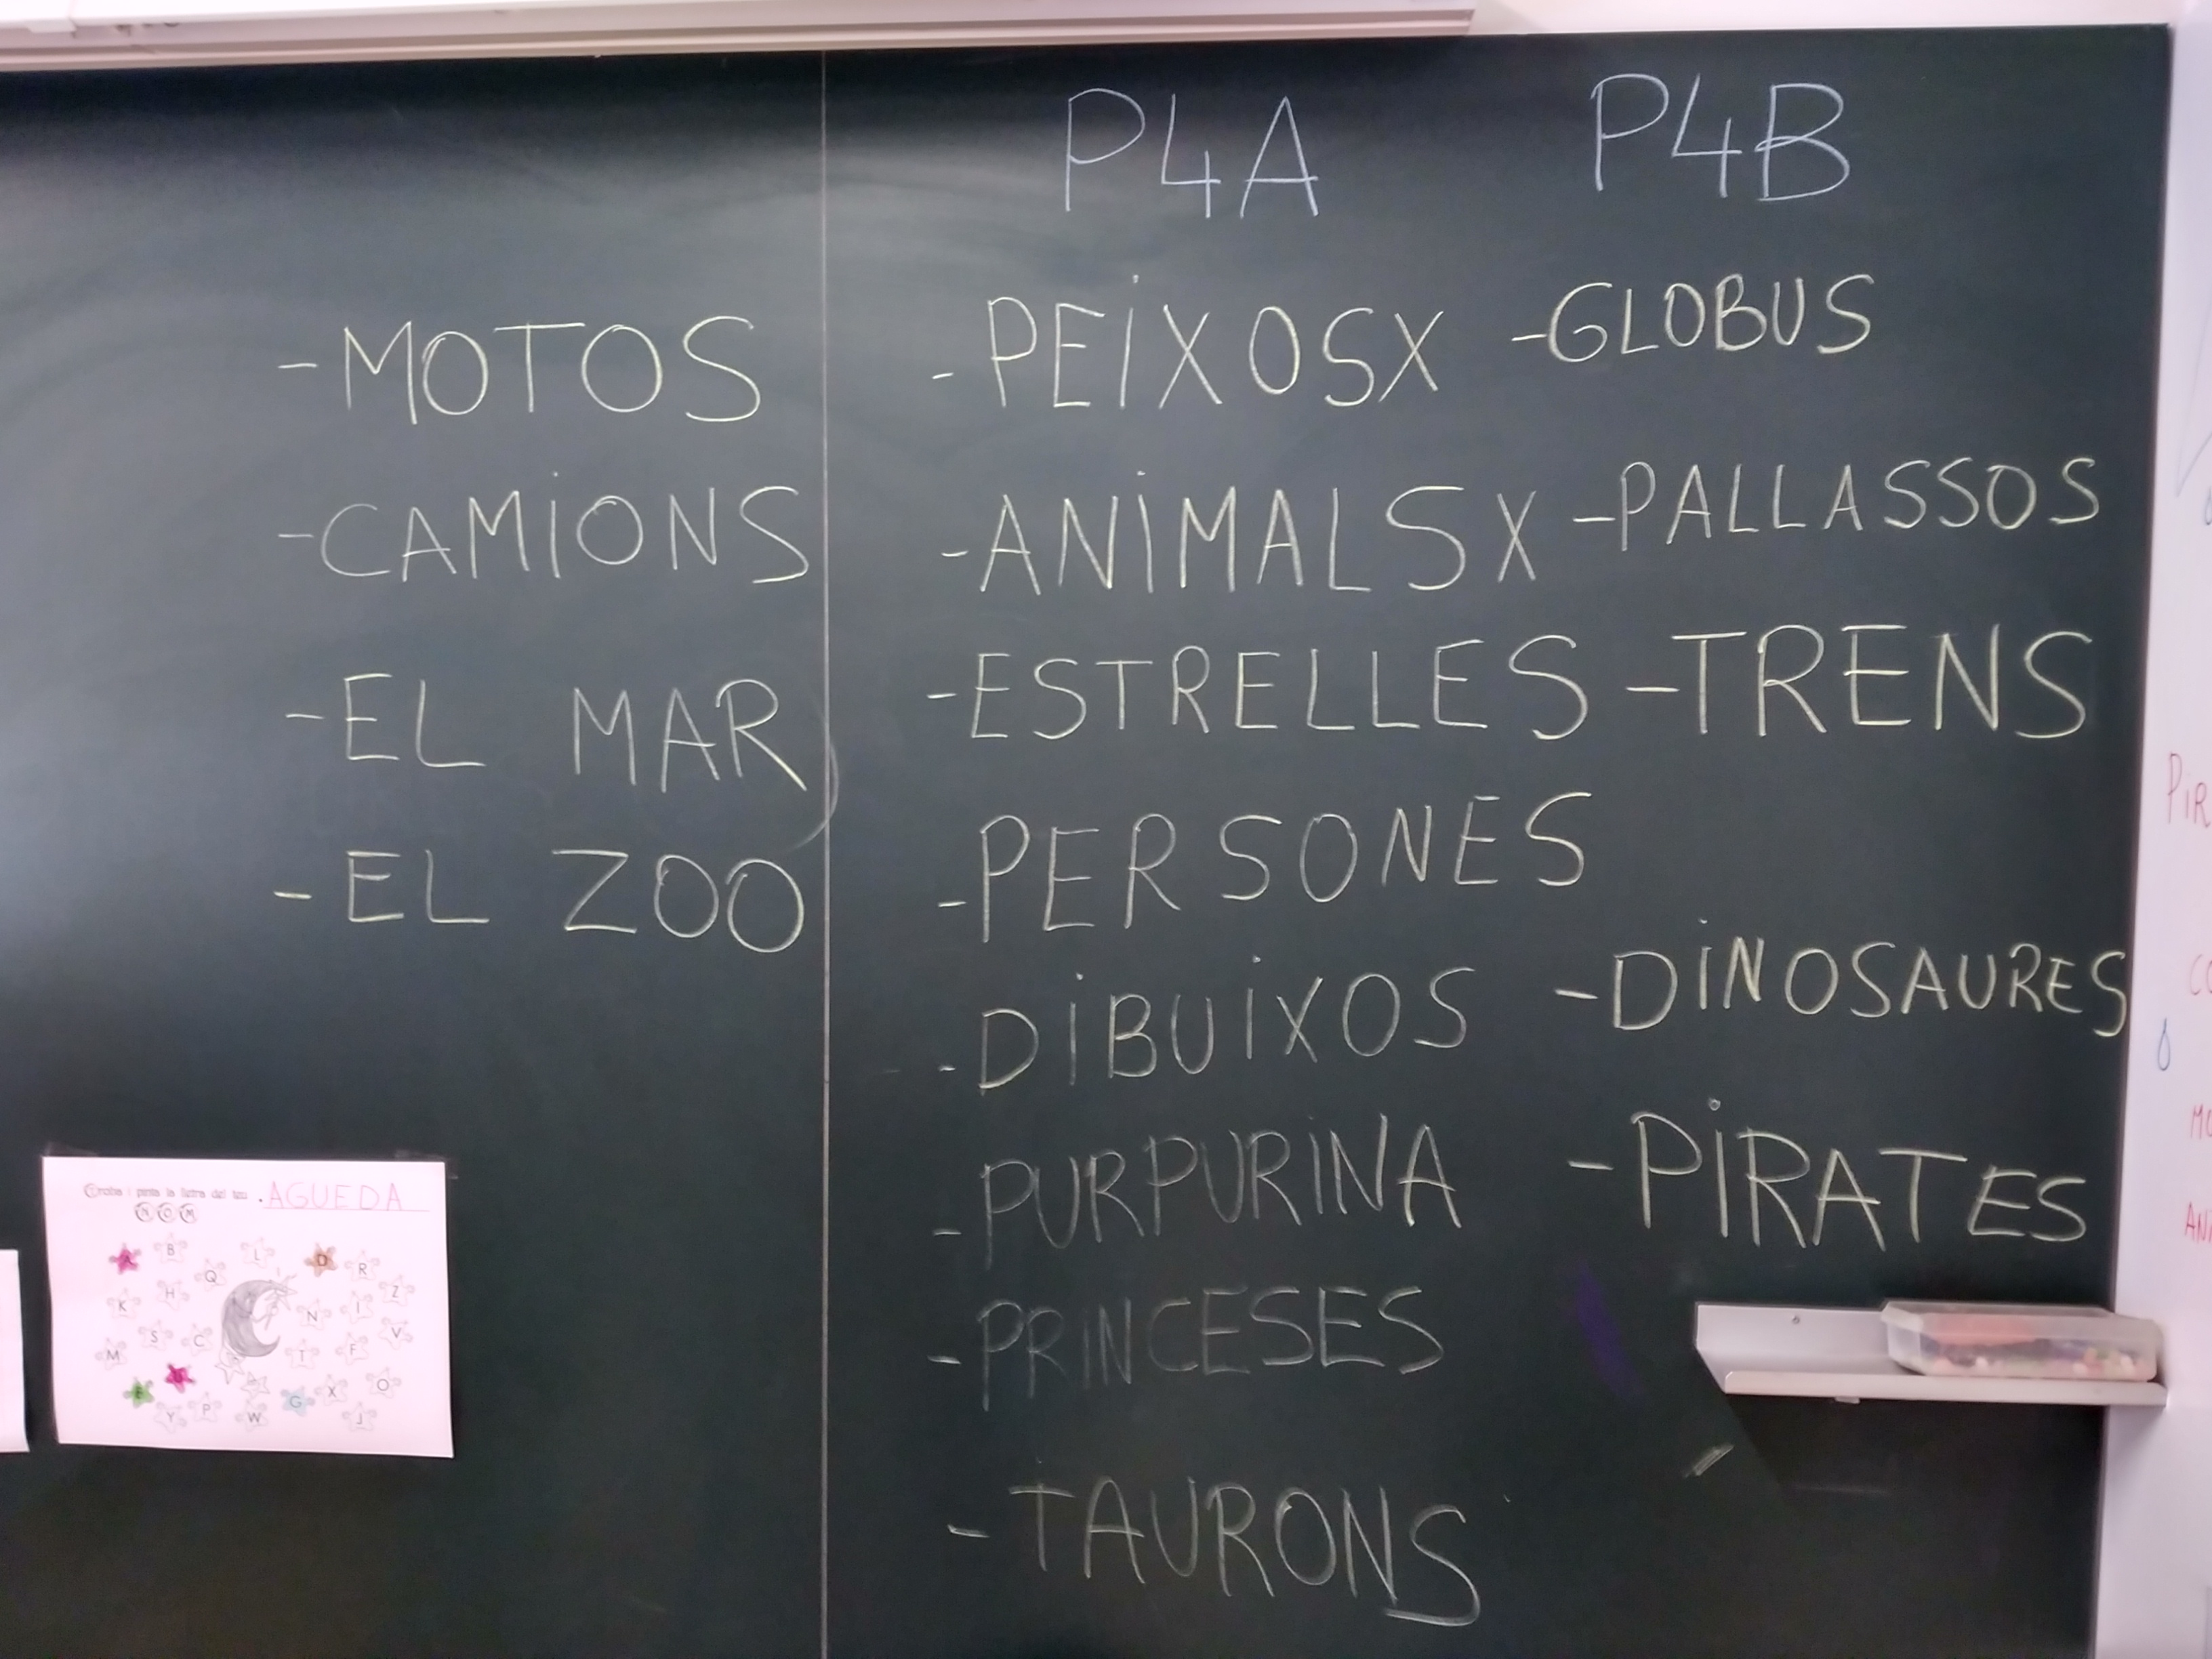 P4A
P4B
-MOTOS
-CAMIONS
-EL MAR
-EL ZOO
-PEIXOS X
-ANIMALS X
-ESTRELLES
-PERSONES
-DIBUIXOS
-PURPURINA
-PRINCESES
-TAURONS
-GLOBUS
-PALLASSOS
-TRENS
-DINOSAURES
-PIRATES
Troba i pinta la lletra del teu . AGUEDA
NOM
A B L D R
Q
K H N I Z
M S C T F V
E G X O
Y P W J